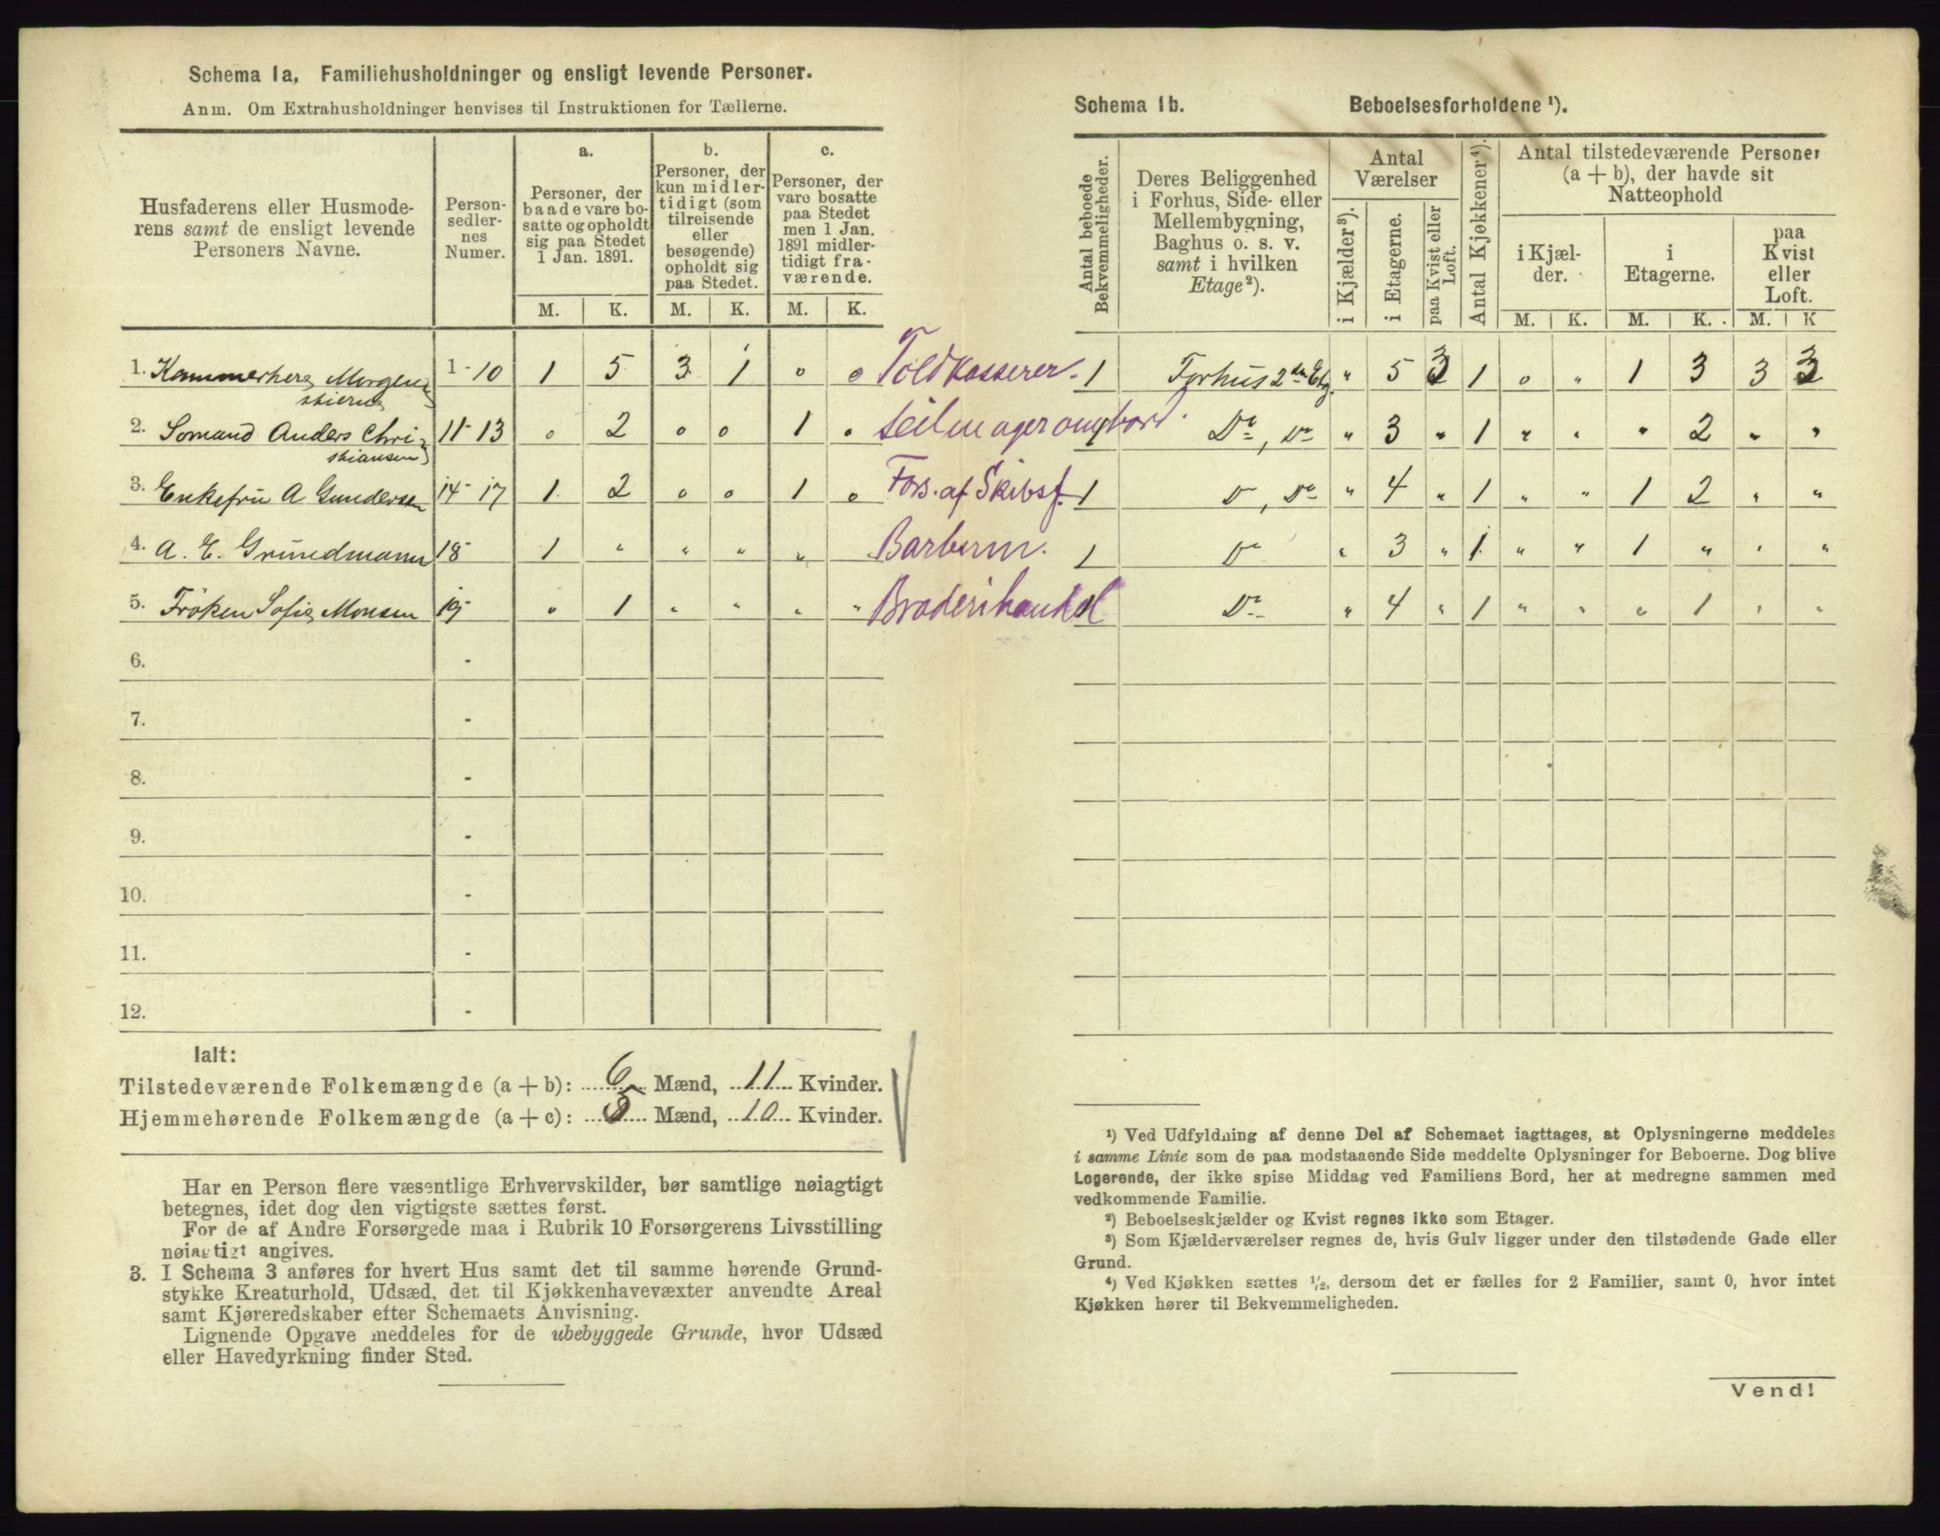 Schema 1a, Familiehusholdninger og ensligt levende Personer.
Anm. Om Extrahusholdninger henvises til Instruktionen for Tællerne.
Husfaderens eller Husmode-
rens samt de ensligt levende
Personers Navne.
Person-
sedler-
nes
Numer.
a.
Personer, der
baade vare bo-
satte og opholdt
sig paa Stedet
1 Jan. 1891.
b.
Personer, der
kun midler-
tidigt (som
tilreisende
eller
besøgende)
opholdt sig
paa Stedet.
c.
Personer, der
vare bosatte
paa Stedet
men 1 Jan.
1891 midler-
tidigt fra-
værende.
M. K. M. K. M. K.
1. Kammerherre Morgen-
stierne 1-10 1 5 3 1 0 0 Toldkasserer.
2. Sömand Anders Chri-
stiansen 11-13 0 2 0 0 1 0
3. Enkefru A Gundersen 14-17 1 2 0 0 1 0 Fors. af Skibsf.
4. A. E. Grundmann 18- 1 " " " " " Barberm.
5. Fröken Sofie Monsen 19- " 1 " " " " Broderihandel
6. -
7. -
8. -
9. -
10. -
11. -
12. -
Ialt:
Tilstedeværende Folkemængde (a+b): 6 Mænd, 11 Kvinder.
Hjemmehørende Folkemængde (a+c): 5 Mænd, 10 Kvinder.
Har en Person flere væsentlige Erhvervskilder, bør samtlige nøiagtigt
betegnes, idet dog den vigtigste sættes først.
For de af Andre Forsørgede maa i Rubrik 10 Forsørgerens Livsstilling
nøiagtigt angives.
3. I Schema 3 anføres for hvert Hus samt det til samme hørende Grund-
stykke Kreaturhold, Udsæd, det til Kjøkkenhavevæxter anvendte Areal
samt Kjøreredskaber efter Schemaets Anvisning.
Lignende Opgave meddeles for de ubebyggede Grunde, hvor Udsæd
eller Havedyrkning finder Sted.
Schema 1b. Beboelsesforholdene ¹).
Antal beboede
Bekvemmeligheder.
Deres Beliggenhed
i Forhus, Side- eller
Mellembygning,
Baghus o. s. v.
samt i hvilken
Etage²).
Antal
Værelser
i Kjælder³).
i Etagerne.
paa Kvist eller
Loft.
Antal Kjøkkener⁴).
Antal tilstedeværende Personer
(a + b), der havde sit
Natteophold
i Kjæl-
der.
i
Etagerne.
paa
Kvist
eller
Loft.
M. K. M. K. M. K
1 Forhus 2den Etg. " 5 3 1 0 " 1 3 3 3
Do, Do " 3 " 1 " " " 2 " "
1 Do, Do " 4 " 1 " " 1 2 " "
1 Do " 3 " 1 " " 1 " " "
1 Do " 4 " 1 " " " 1 " "
¹) Ved Udfyldning af denne Del af Schemaet iagttages, at Oplysningerne meddeles
i samme Linie som de paa modstaaende Side meddelte Oplysninger for Beboerne. Dog blive
Logerende, der ikke spise Middag ved Familiens Bord, her at medregne sammen med
vedkommende Familie.
²) Beboelseskjælder og Kvist regnes ikke som Etager.
³) Som Kjælderværelser regnes de, hvis Gulv ligger under den tilstødende Gade eller
Grund.
⁴) Ved Kjøkken sættes ½, dersom det er fælles for 2 Familier, samt 0, hvor intet
Kjøkken hører til Bekvemmeligheden.
Vend!